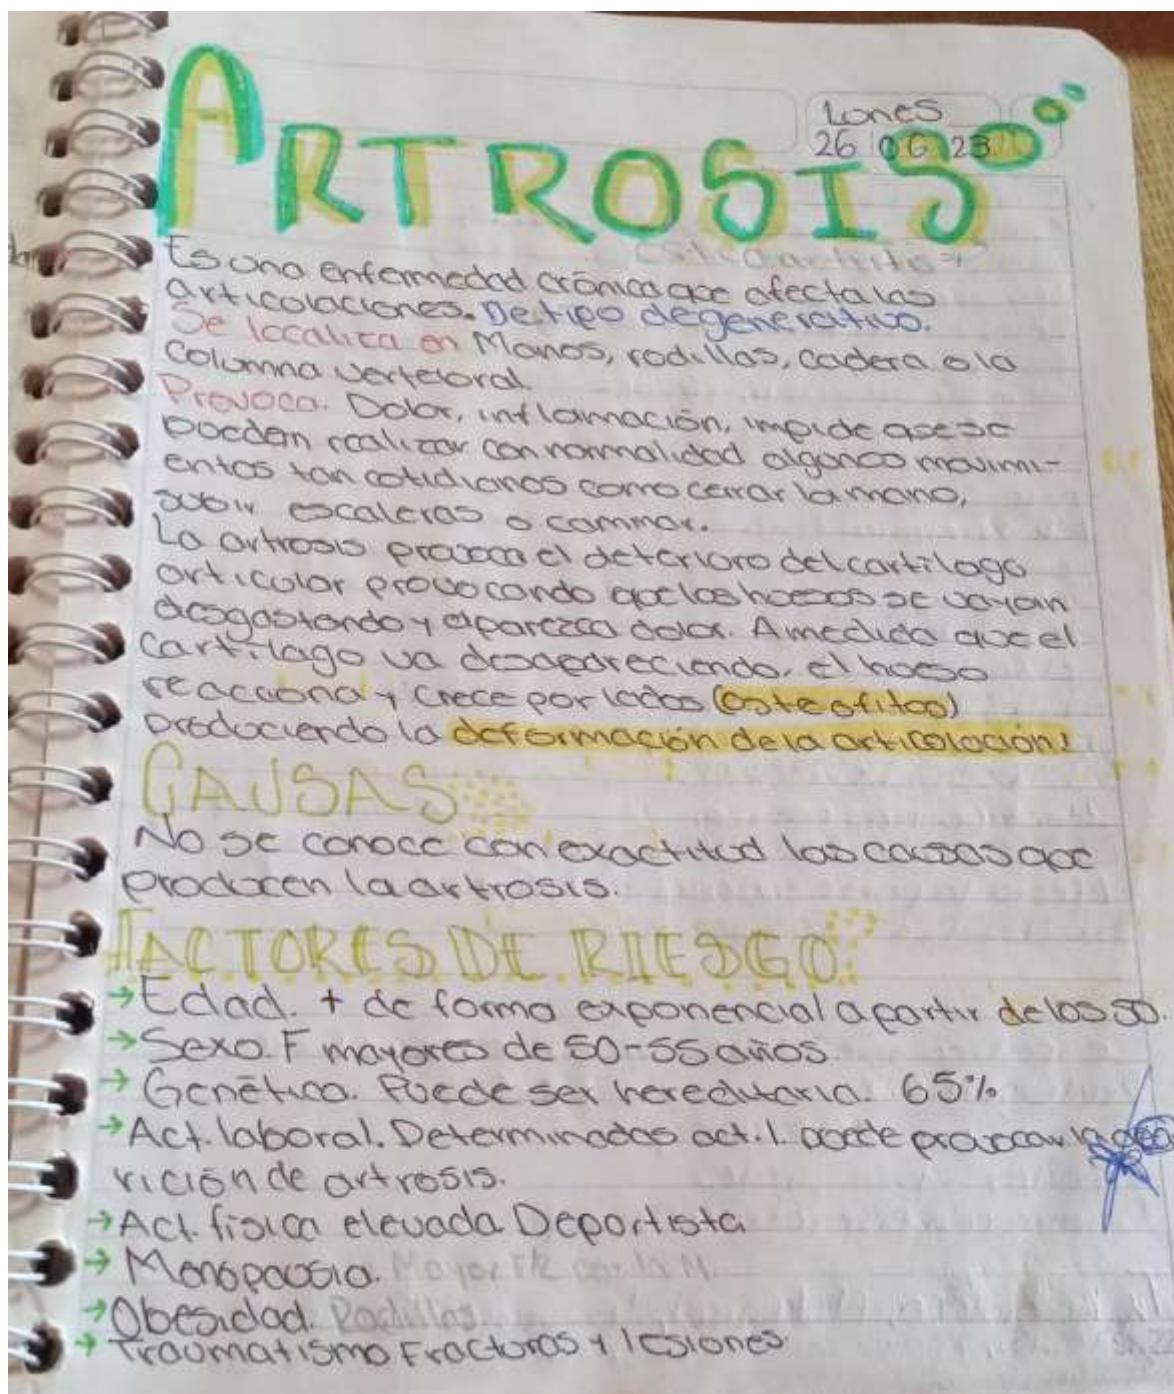 Lunes
26 06 23
ARTROSIS
Es una enfermedad crónica que afecta las
articulaciones. De tipo degenerativo.
Se localiza en Manos, rodillas, cadera o la
columna vertebral
Provoca. Dolor, inflamación, impide que se
puedan realizar con normalidad algunos movimi-
entos tan cotidianos como cerrar la mano,
subir escaleras o caminar.
La artrosis provoca el deterioro del cartílago
articular provocando que los huesos se vayan
desgastando y aparezca dolor. A medida que el
Cartílago va desapareciendo, el hueso
reacciona y crece por lados (osteofitos)
produciendo la deformación de la articulación!
CAUSAS
No se conoce con exactitud las causas que
producen la artrosis.
FACTORES DE RIESGO
→ Edad. + de forma exponencial a partir de los 50.
→ Sexo. F mayores de 50-55 años.
→ Genética. Puede ser hereditaria. 65%
→ Act. laboral. Determinadas act. l. puede provocar la apa
rición de artrosis.
→ Act. física elevada Deportista
→ Menopausia. Mayor por la M
→ Obesidad. Rodillas
→ Traumatismo Fracturas y lesiones